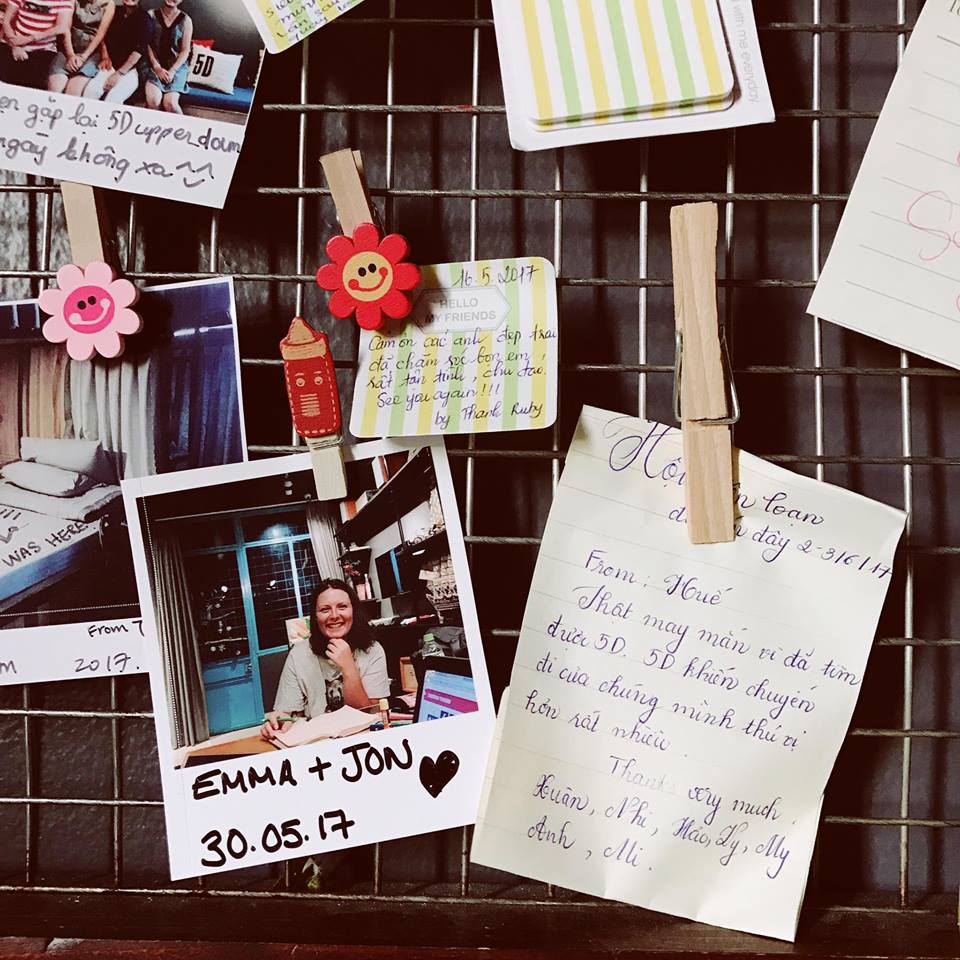 5D
gặp lại 5D upper_down
ngày không xa
with me everyday
16.5.2017
HELLO
MY FRIENDS
Cám ơn các anh đẹp trai
đã chăm sóc bọn em,
rất tận tình, chu đáo.
See you again!!!
by Thanh Ruby
WAS HERE.
From
2017.
EMMA + JON
30.05.17
Hội loạn
đây 2-3/6/17
From: Huế
Thật may mắn vì đã tìm
được 5D. 5D khiến chuyến
đi của chúng mình thú vị
hơn rất nhiều.
Thanks very much.
Xuân, Nhi, Hảo, Ly, My
Anh, Mi.